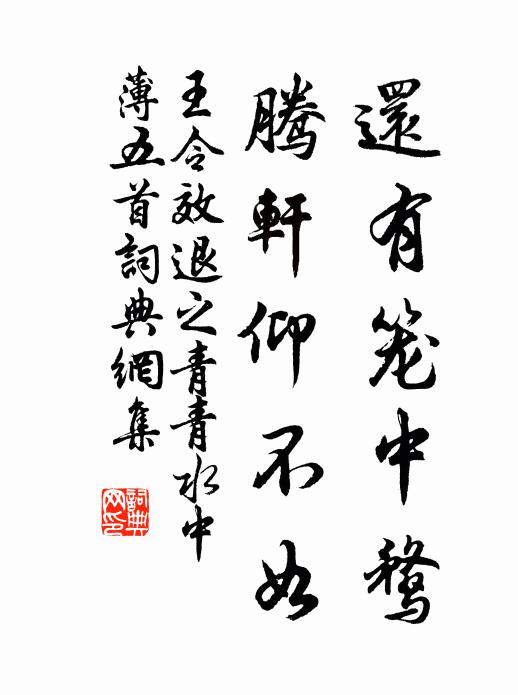 還有笼中鶩
騰軒仰不如
王令效退之青青水中
薄五首詞典網集
詞典
网印